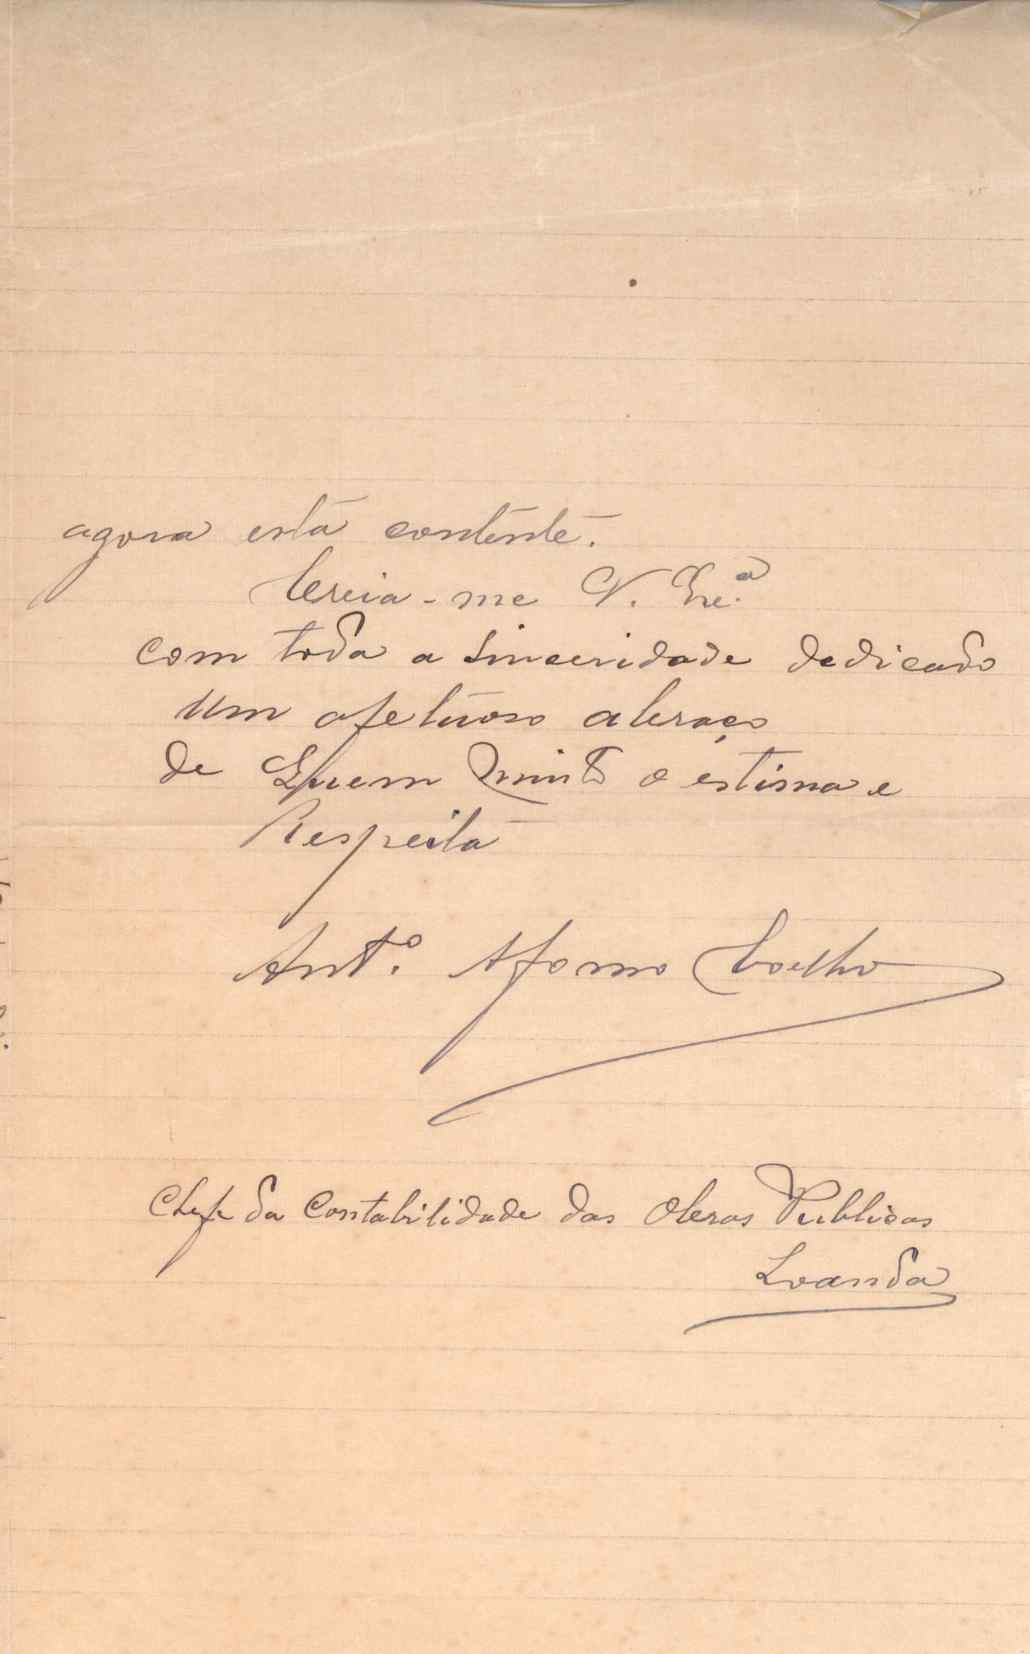 agora está contente.
Creia-me V. Exc.ª
com toda a sinceridade dedicado
um afetuoso abraço
de Quem Muito o estima e
Respeita
Ant.º Afonso Coelho
Chefe da Contabilidade das Obras Publicas
Loanda